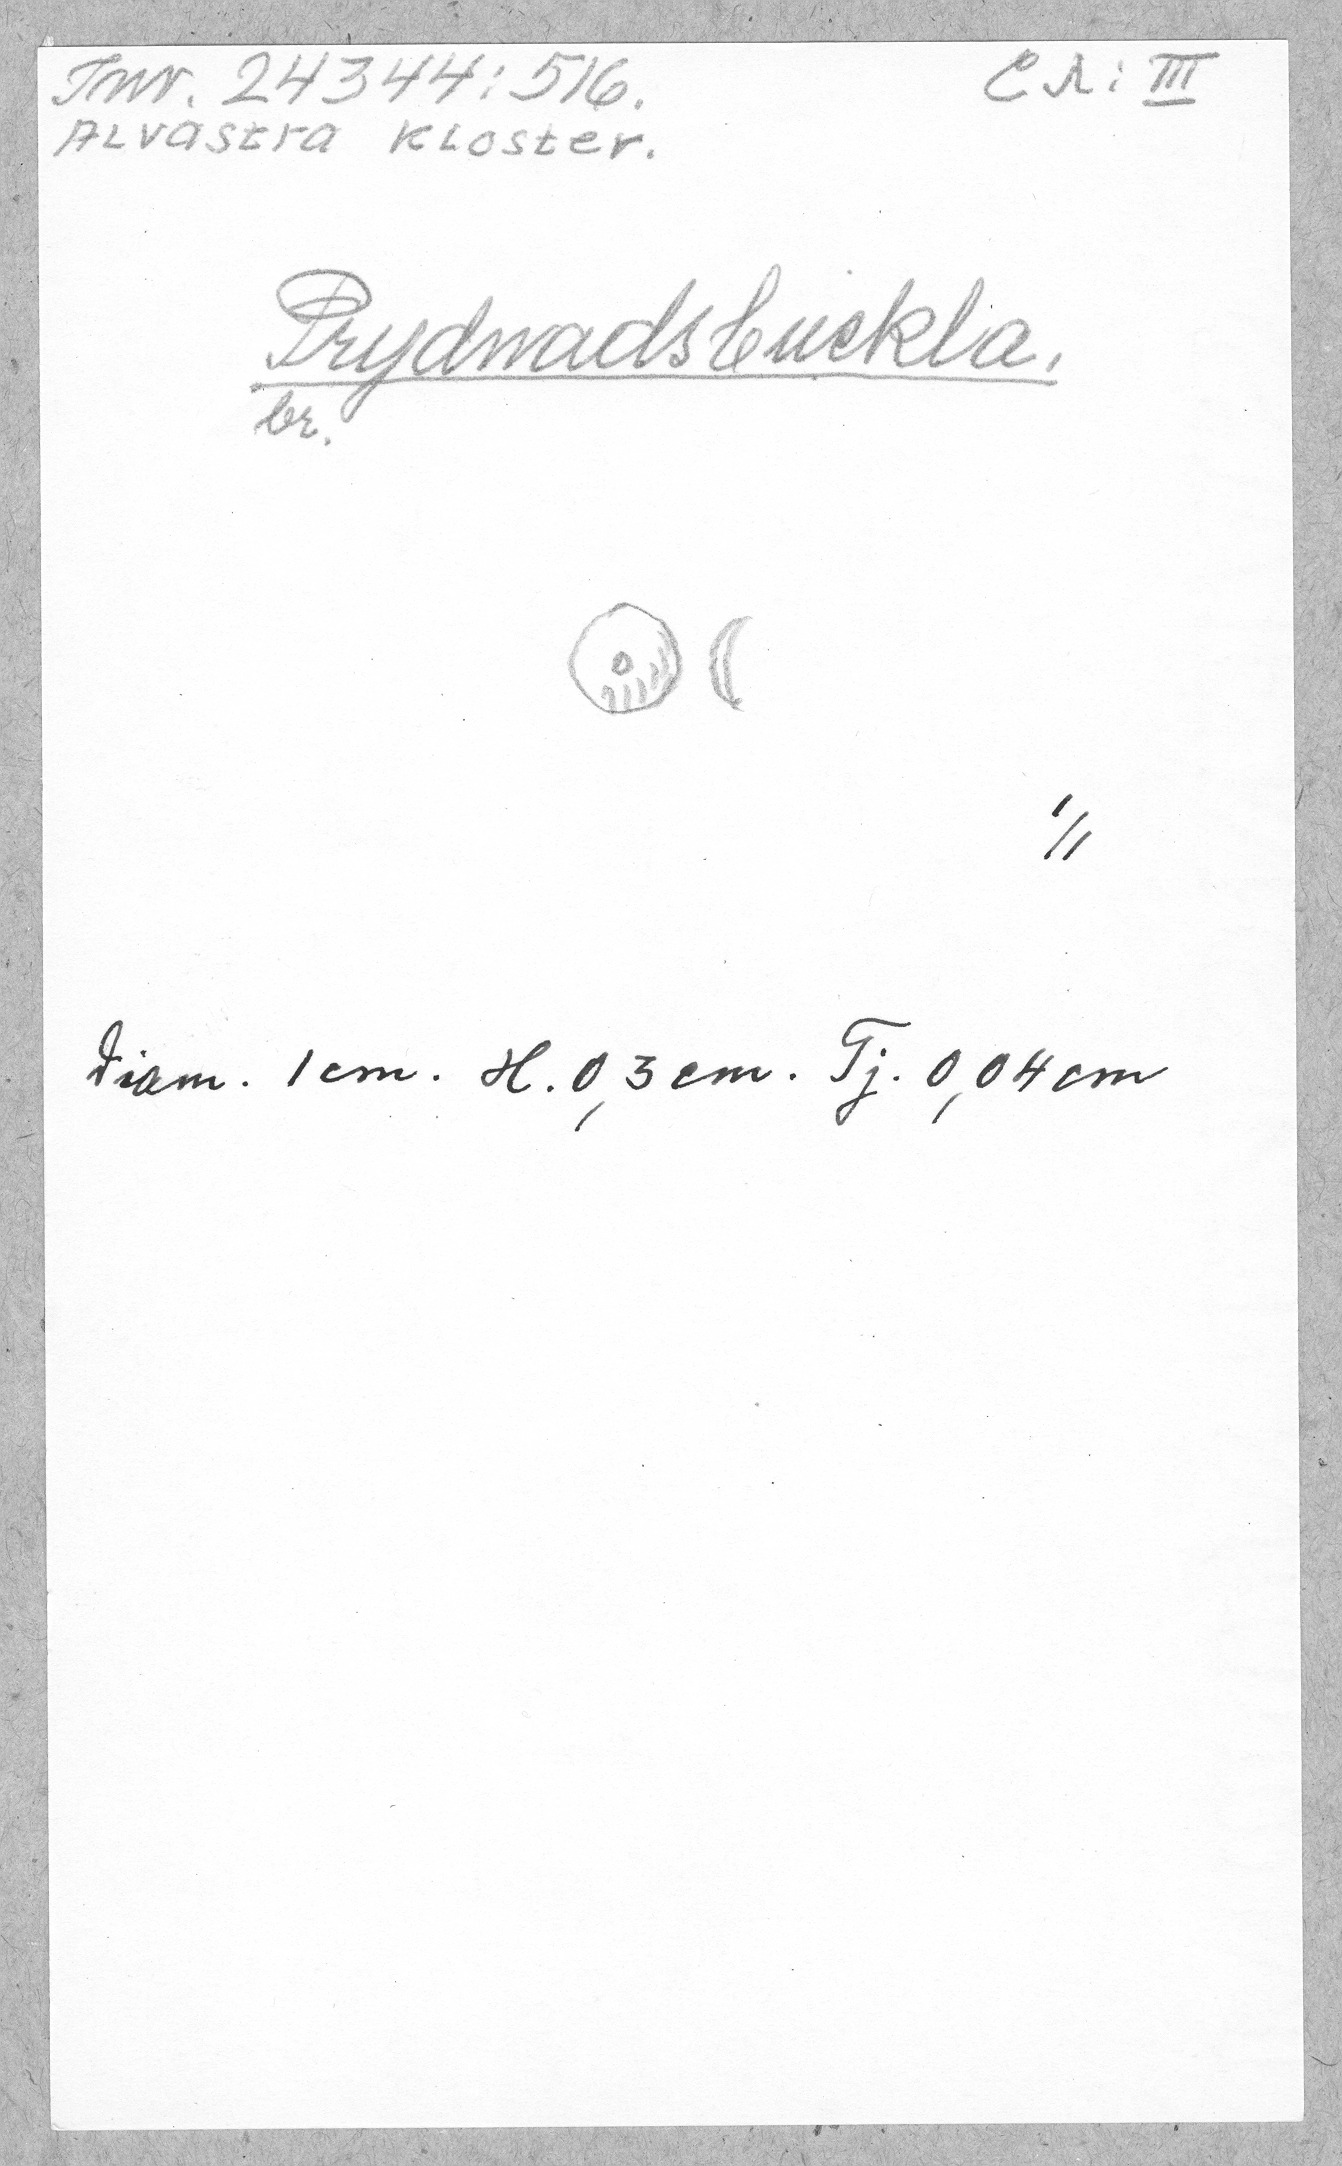 Inv. 24344:516.
C A: III
Alvastra kloster.
Prydnadsbuckla.
br.
1/1
Diam. 1 cm. H. 0,3 cm. Tj. 0,04 cm